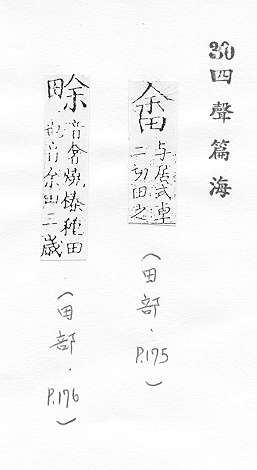 30 四聲篇海
畬 与居式車
二切田之
(田部.P.175)
畭 音奢燒榛種田
也音余田三歲
(田部.P.176)